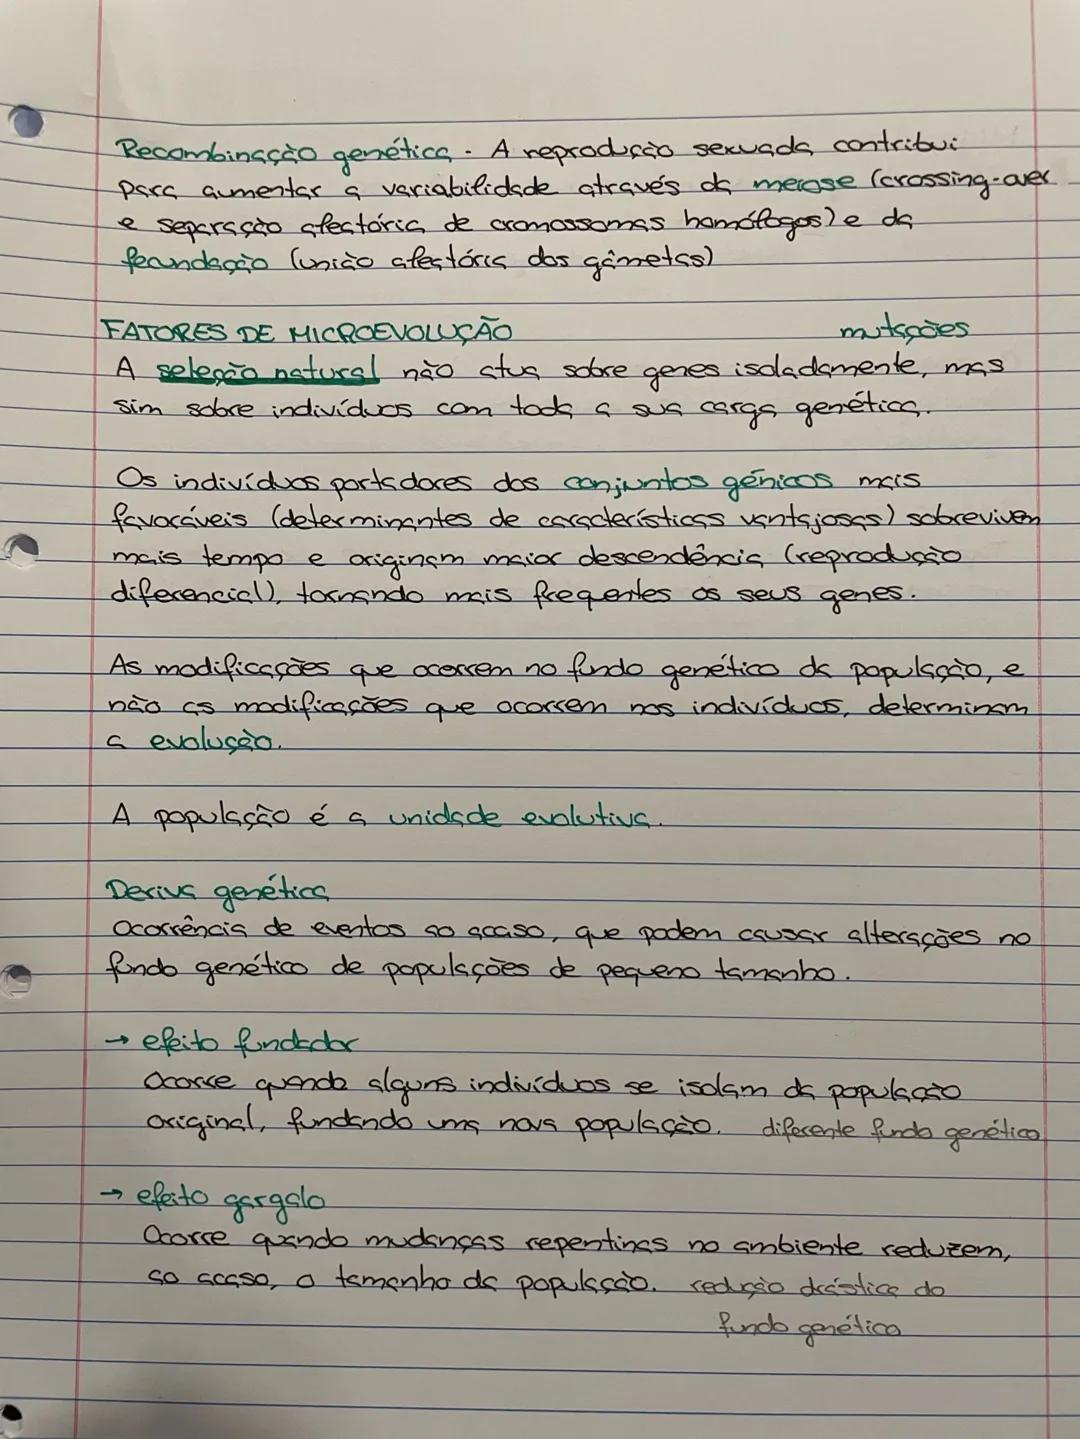 Recombinação genética - A reprodução sexuada contribui
para aumentar a variabilidade através da meiose (crossing-over
e separação aleatória de cromossomas homólogos) e da
fecundação (união aleatória dos gâmetas)
FATORES DE MICROEVOLUÇÃO mutações
A seleção natural não atua sobre genes isoladamente, mas
sim sobre indivíduos com toda a sua carga genética.
Os indivíduos portadores dos conjuntos génicos mais
favoráveis (determinantes de características vantajosas) sobrevivem
mais tempo e originam maior descendência (reprodução
diferencial), tornando mais frequentes os seus genes.
As modificações que ocorrem no fundo genético da população, e
não as modificações que ocorrem nos indivíduos, determinam
a evolução.
A população é a unidade evolutiva.
Deriva genética
Ocorrência de eventos ao acaso, que podem causar alterações no
fundo genético de populações de pequeno tamanho.
→ efeito fundador
Ocorre quando alguns indivíduos se isolam da população
original, fundando uma nova população. diferente fundo genético
→ efeito gargalo
Ocorre quando mudanças repentinas no ambiente reduzem,
ao acaso, o tamanho da população. redução drástica do
fundo genético